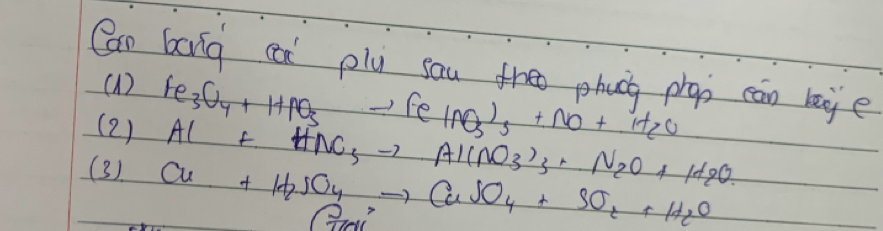 Cân bằng các pứ sau theo phương pháp cân bằng e
(1) Fe₃O₄ + HNO₃ → Fe(NO₃)₃ + NO + H₂O
(2) Al + HNO₃ → Al(NO₃)₃ + N₂O + H₂O.
(3) Cu + H₂SO₄ → CuSO₄ + SO₂ + H₂O
Giải